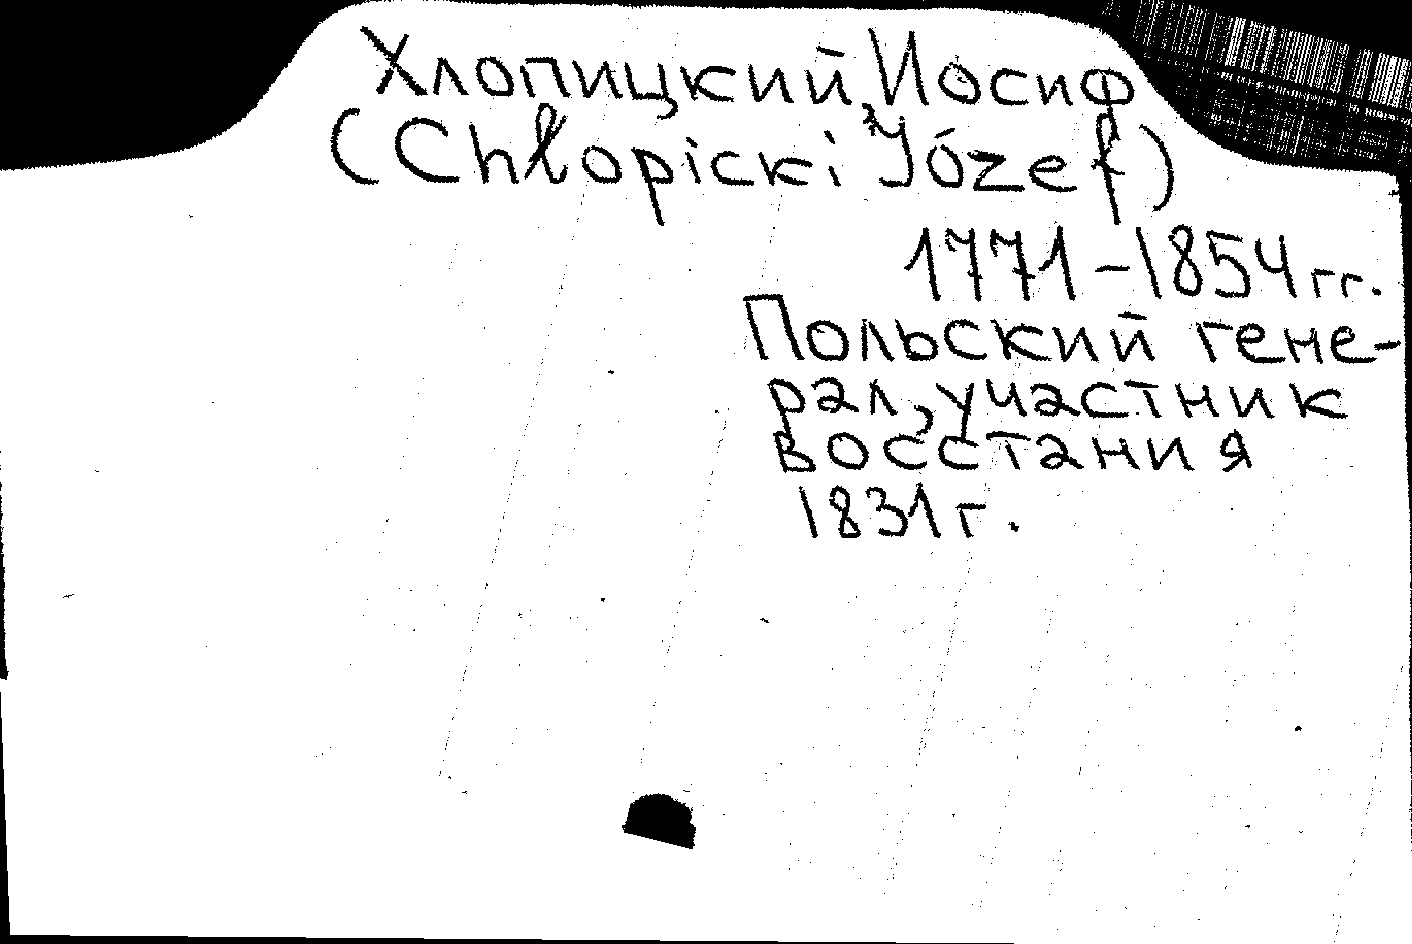 Хлопицкий, Иосиф
(Chłopicki Józef)
1771-1854 гг.
Польский гене-
рал, участник
восстания
1831 г.